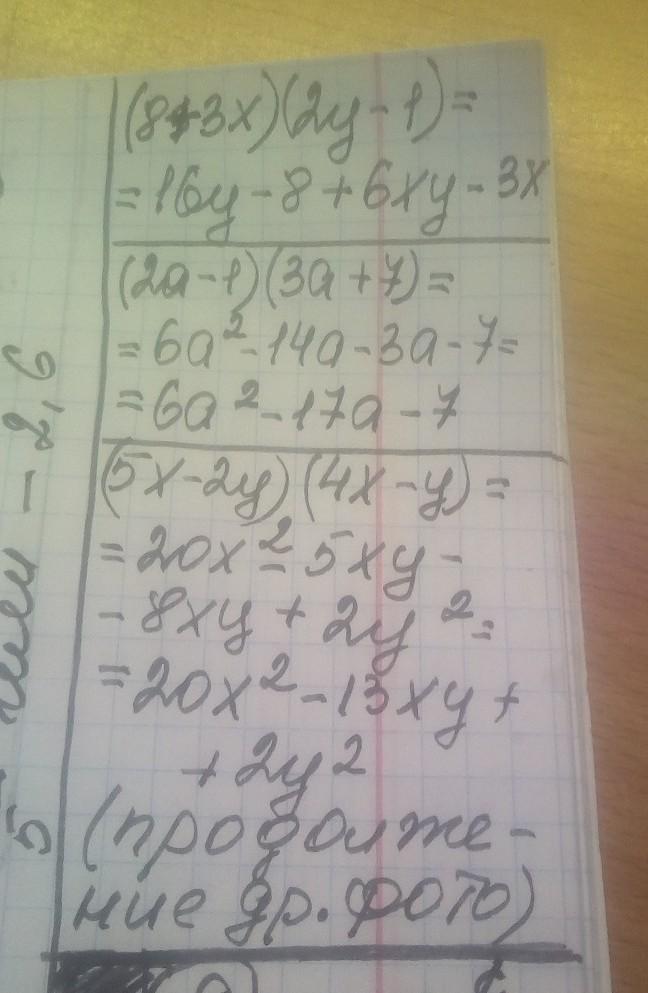 (8+3x)(2y-1)=
=16y-8+6xy-3x
(2a-1)(3a+7)=
=6a²-14a-3a-7=
=6a²-17a-7
(5x-2y)(4x-y)=
=20x²-5xy-
-8xy+2y²=
=20x²-13xy+
+2y²
(продолже-
ние др. фото)
-2,6
5